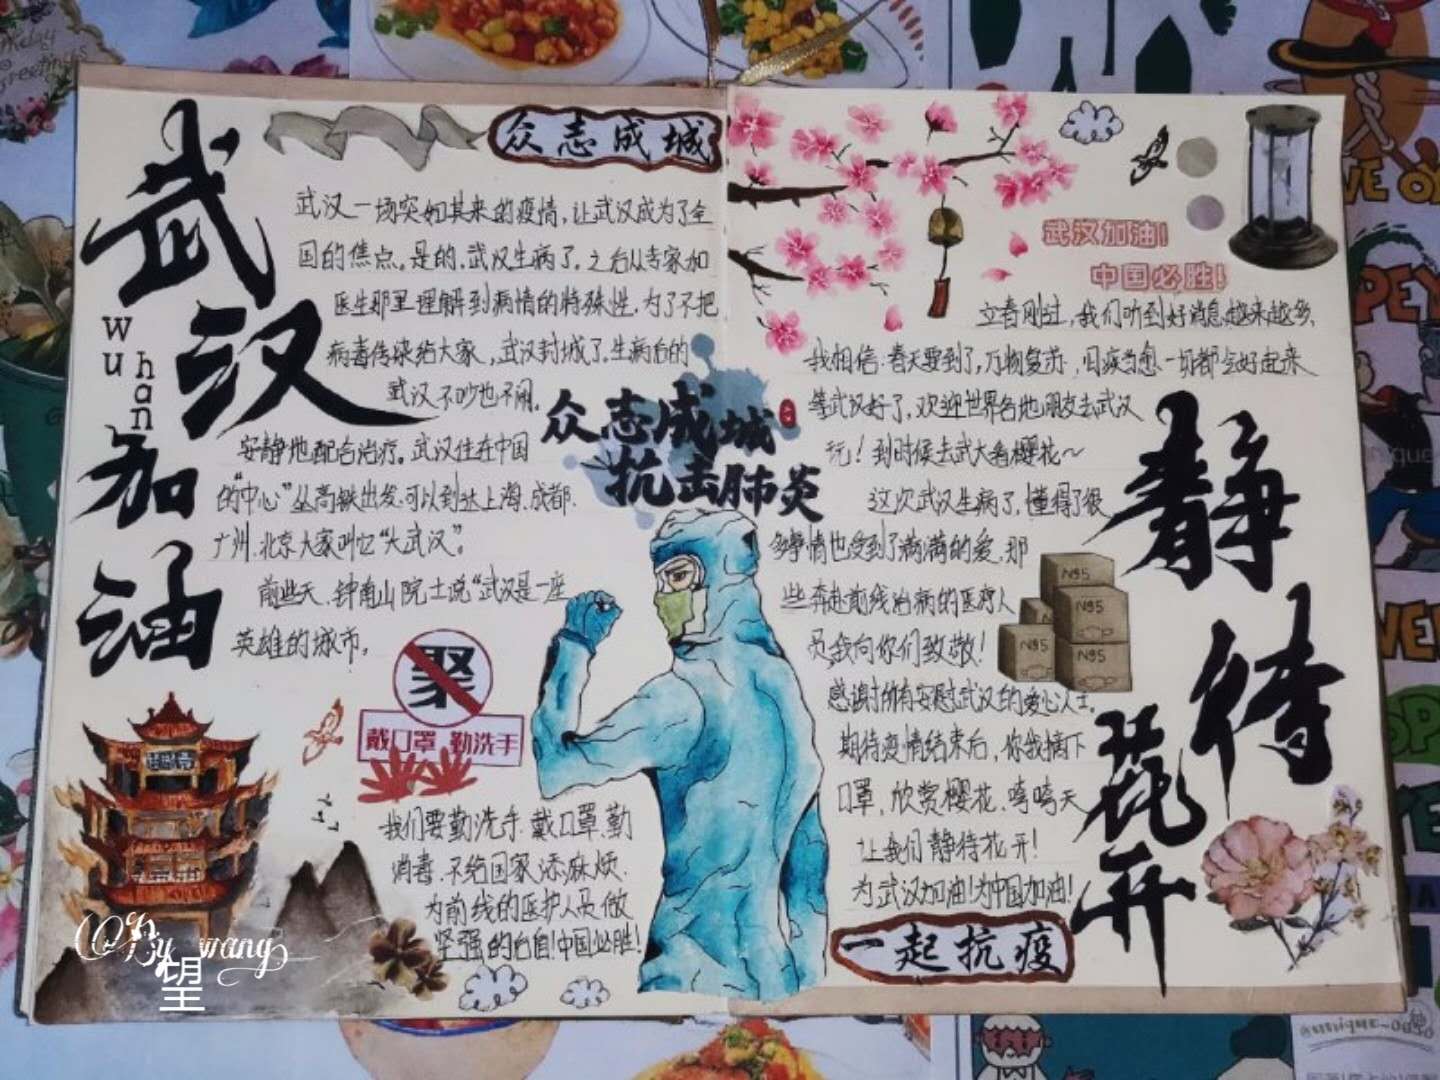 武汉加油
wu han
众志成城
武汉一场突如其来的疫情,让武汉成为了全
国的焦点。是的.武汉生病了。之后从专家和
医生那里理解到病情的特殊性,为了不把
病毒传染给大家,武汉封城了.生病后的
武汉不吵也不闹。
安静地配合治疗。武汉住在中国
的"中心"从高铁出发.可以到达上海.成都.
广州.北京大家叫它"大武汉"。
前些天.钟南山院士说"武汉是一座
英雄的城市。
聚
戴口罩 勤洗手
我们要勤洗手.戴口罩.勤
消毒.不给国家添麻烦.
为前线的医护人员做
坚强的后盾!中国必胜!
众志成城
抗击肺炎
武汉加油!
中国必胜!
立春刚过,我们听到好消息越来越多.
我相信.春天要到了,万物复苏.旧疾当愈一切都会好起来
等武汉好了,欢迎世界各地朋友去武汉
玩!到时候去武大看樱花~
这次武汉生病了,懂得了很
多事情也受到了满满的爱.那
些奔赴前线治病的医疗人
员我向你们致敬!
感谢所有安慰武汉的爱心人士.
期待疫情结束后,你我摘下
口罩.欣赏樱花.嗬嗬天
让我们静待花开!
为武汉加油!为中国加油!
N95
N95
N95
N95
静待花开
一起抗疫
By wang
望